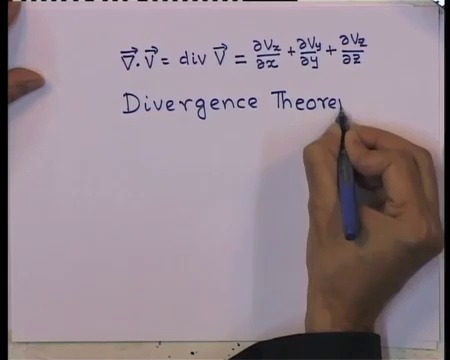 $\vec{\nabla}.\vec{V} = \text{div } \vec{V} = \frac{\partial V_x}{\partial x} + \frac{\partial V_y}{\partial y} + \frac{\partial V_z}{\partial z}$
Divergence Theore